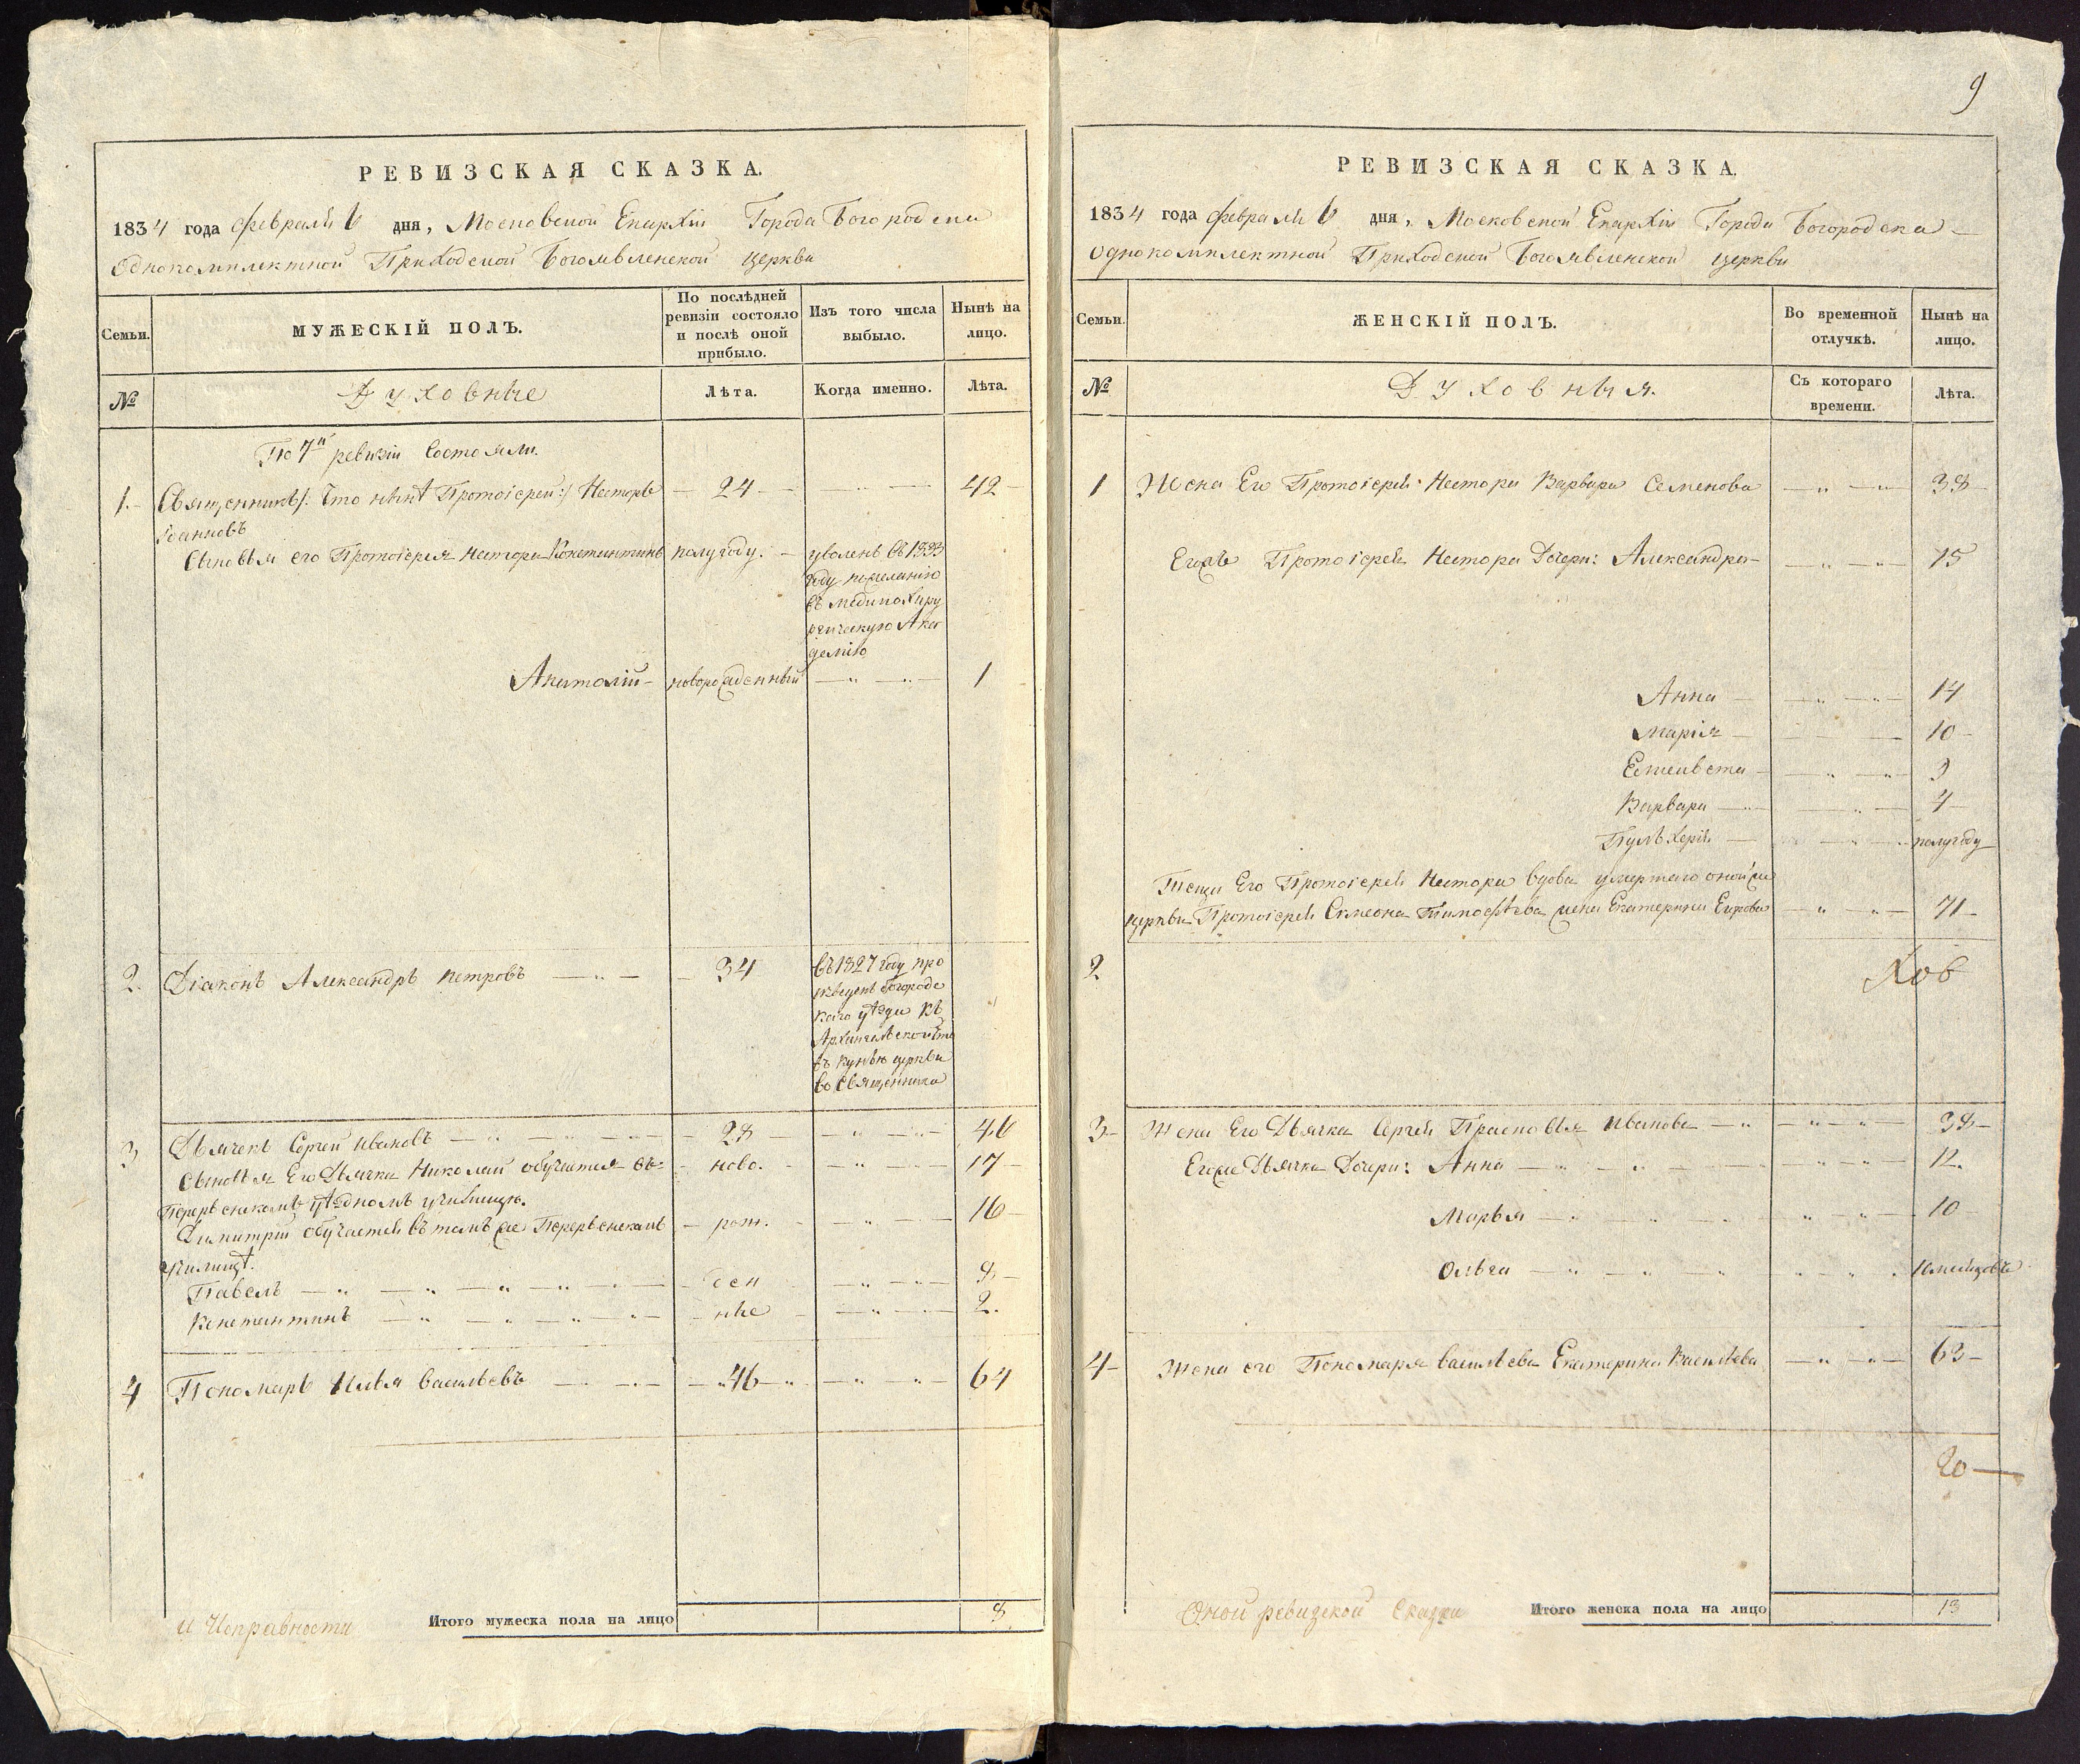 РЕВИЗСКАЯ СКАЗКА.
1834 года февраля 6 дня, Московской Епархіи Города Богородска
Однокомплектной Приходской Богоявленской церкви
Семьи.
МУЖЕСКІЙ ПОЛЪ.
По послѣдней ревизіи состояло и послѣ оной прибыло.
Изъ того числа выбыло.
Нынѣ на лицо.
№
Духовные
Лѣта.
Когда именно.
Лѣта.
По 7й ревизіи Состояли.
1. Священникъ /: Что нынѣ Протоіерей :/ Несторъ — 24 — 42
Іоанновъ
Сыновья его Протоіерея Нестора Константинъ полугоду. — уволенъ въ 1833
году по желанію
въ медикохиру
ргическую Ака
демію
Анатолій — новорожденный — 1
2. Діаконъ Александръ Петровъ — 34 въ 1827 году про
изведенъ Богородс
каго уѣзда къ
Архангельской что
въ церкви
во Священника
3 Дьячекъ Сергей Ивановъ — 28 — 46
Сыновья Его Дьячка Николай обучается въ ново. — 17
Перервенскомъ уѣздномъ училищѣ.
Димитрій обучается въ томъ же Перервенскомъ — рож. — 16
училищѣ.
Павелъ — ден — 8
Константинъ — ные — 2.
4 Пономарь Илья Васильевъ — 46 — 64
и Исправности
Итого мужеска пола на лицо 8
9
РЕВИЗСКАЯ СКАЗКА.
1834 года февраля 6 дня, Московской Епархіи Города Богородска
Однокомплектной Приходской Богоявленской церкви
Семьи.
ЖЕНСКІЙ ПОЛЪ.
Во временной отлучкѣ.
Нынѣ на лицо.
№
Духовныя.
Съ котораго времени.
Лѣта.
1 Жена Его Протоіерея Нестора Варвара Семенова — 38
Егожъ Протоіерея Нестора Дочери: Александра — 15
Анна — 14
Марія — 10
Елисавета — 9
Варвара — 4
Пульхерія — полугоду
Теща Его Протоіерея Нестора вдова умершаго оной же
церкви Протоіерея Симеона Тимофѣева жена Екатерина Егорова — 71
2
Хов
3 Жена Его Дьячка Сергея Прасковья Иванова — 38
Егоже Дьячка Дочери: Анна — 12.
Марья — 10
Ольга — 10 мѣсяцовъ
4 Жена его Пономаря Васильева Екатерина Васильева — 63
20
Оной ревизской Сказки
Итого женска пола на лицо 13